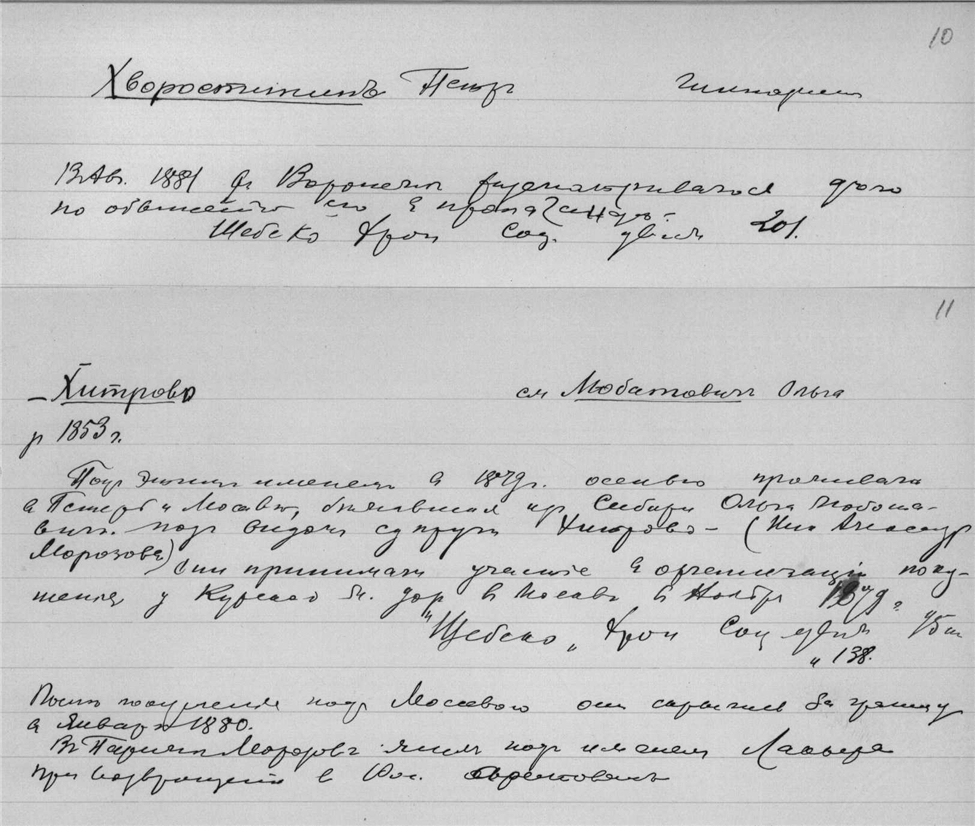 10
Хворостининъ Петръ гимназистъ
В Авг. 1881 въ Воронежѣ рассматривалось дѣло
по обвиненію его въ пропагандѣ.
Шебеко Хрон Соц. движ 201.
11
Хитрово см Любатовичъ Ольга
р 1853 г.
Подъ этимъ именемъ въ 1879г. осенью проживала
въ Петерб и Москвѣ, бѣжавшая изъ Сибири Ольга Любата-
вичъ. подъ видомъ супруги Хитрово - (Ник Александр
Морозова)
Они принимали участіе въ организаціи поку-
шенія у Курской ж. дор въ Москвѣ въ Ноябрѣ 1879г
"Шебеко" Хрон Соц движ
" 138.
Послѣ покушенія подъ Москвою они скрылись за границу
въ Январѣ 1880.
Въ Парижѣ Морозовъ жилъ подъ именемъ
При возвращеніи в арестованъ